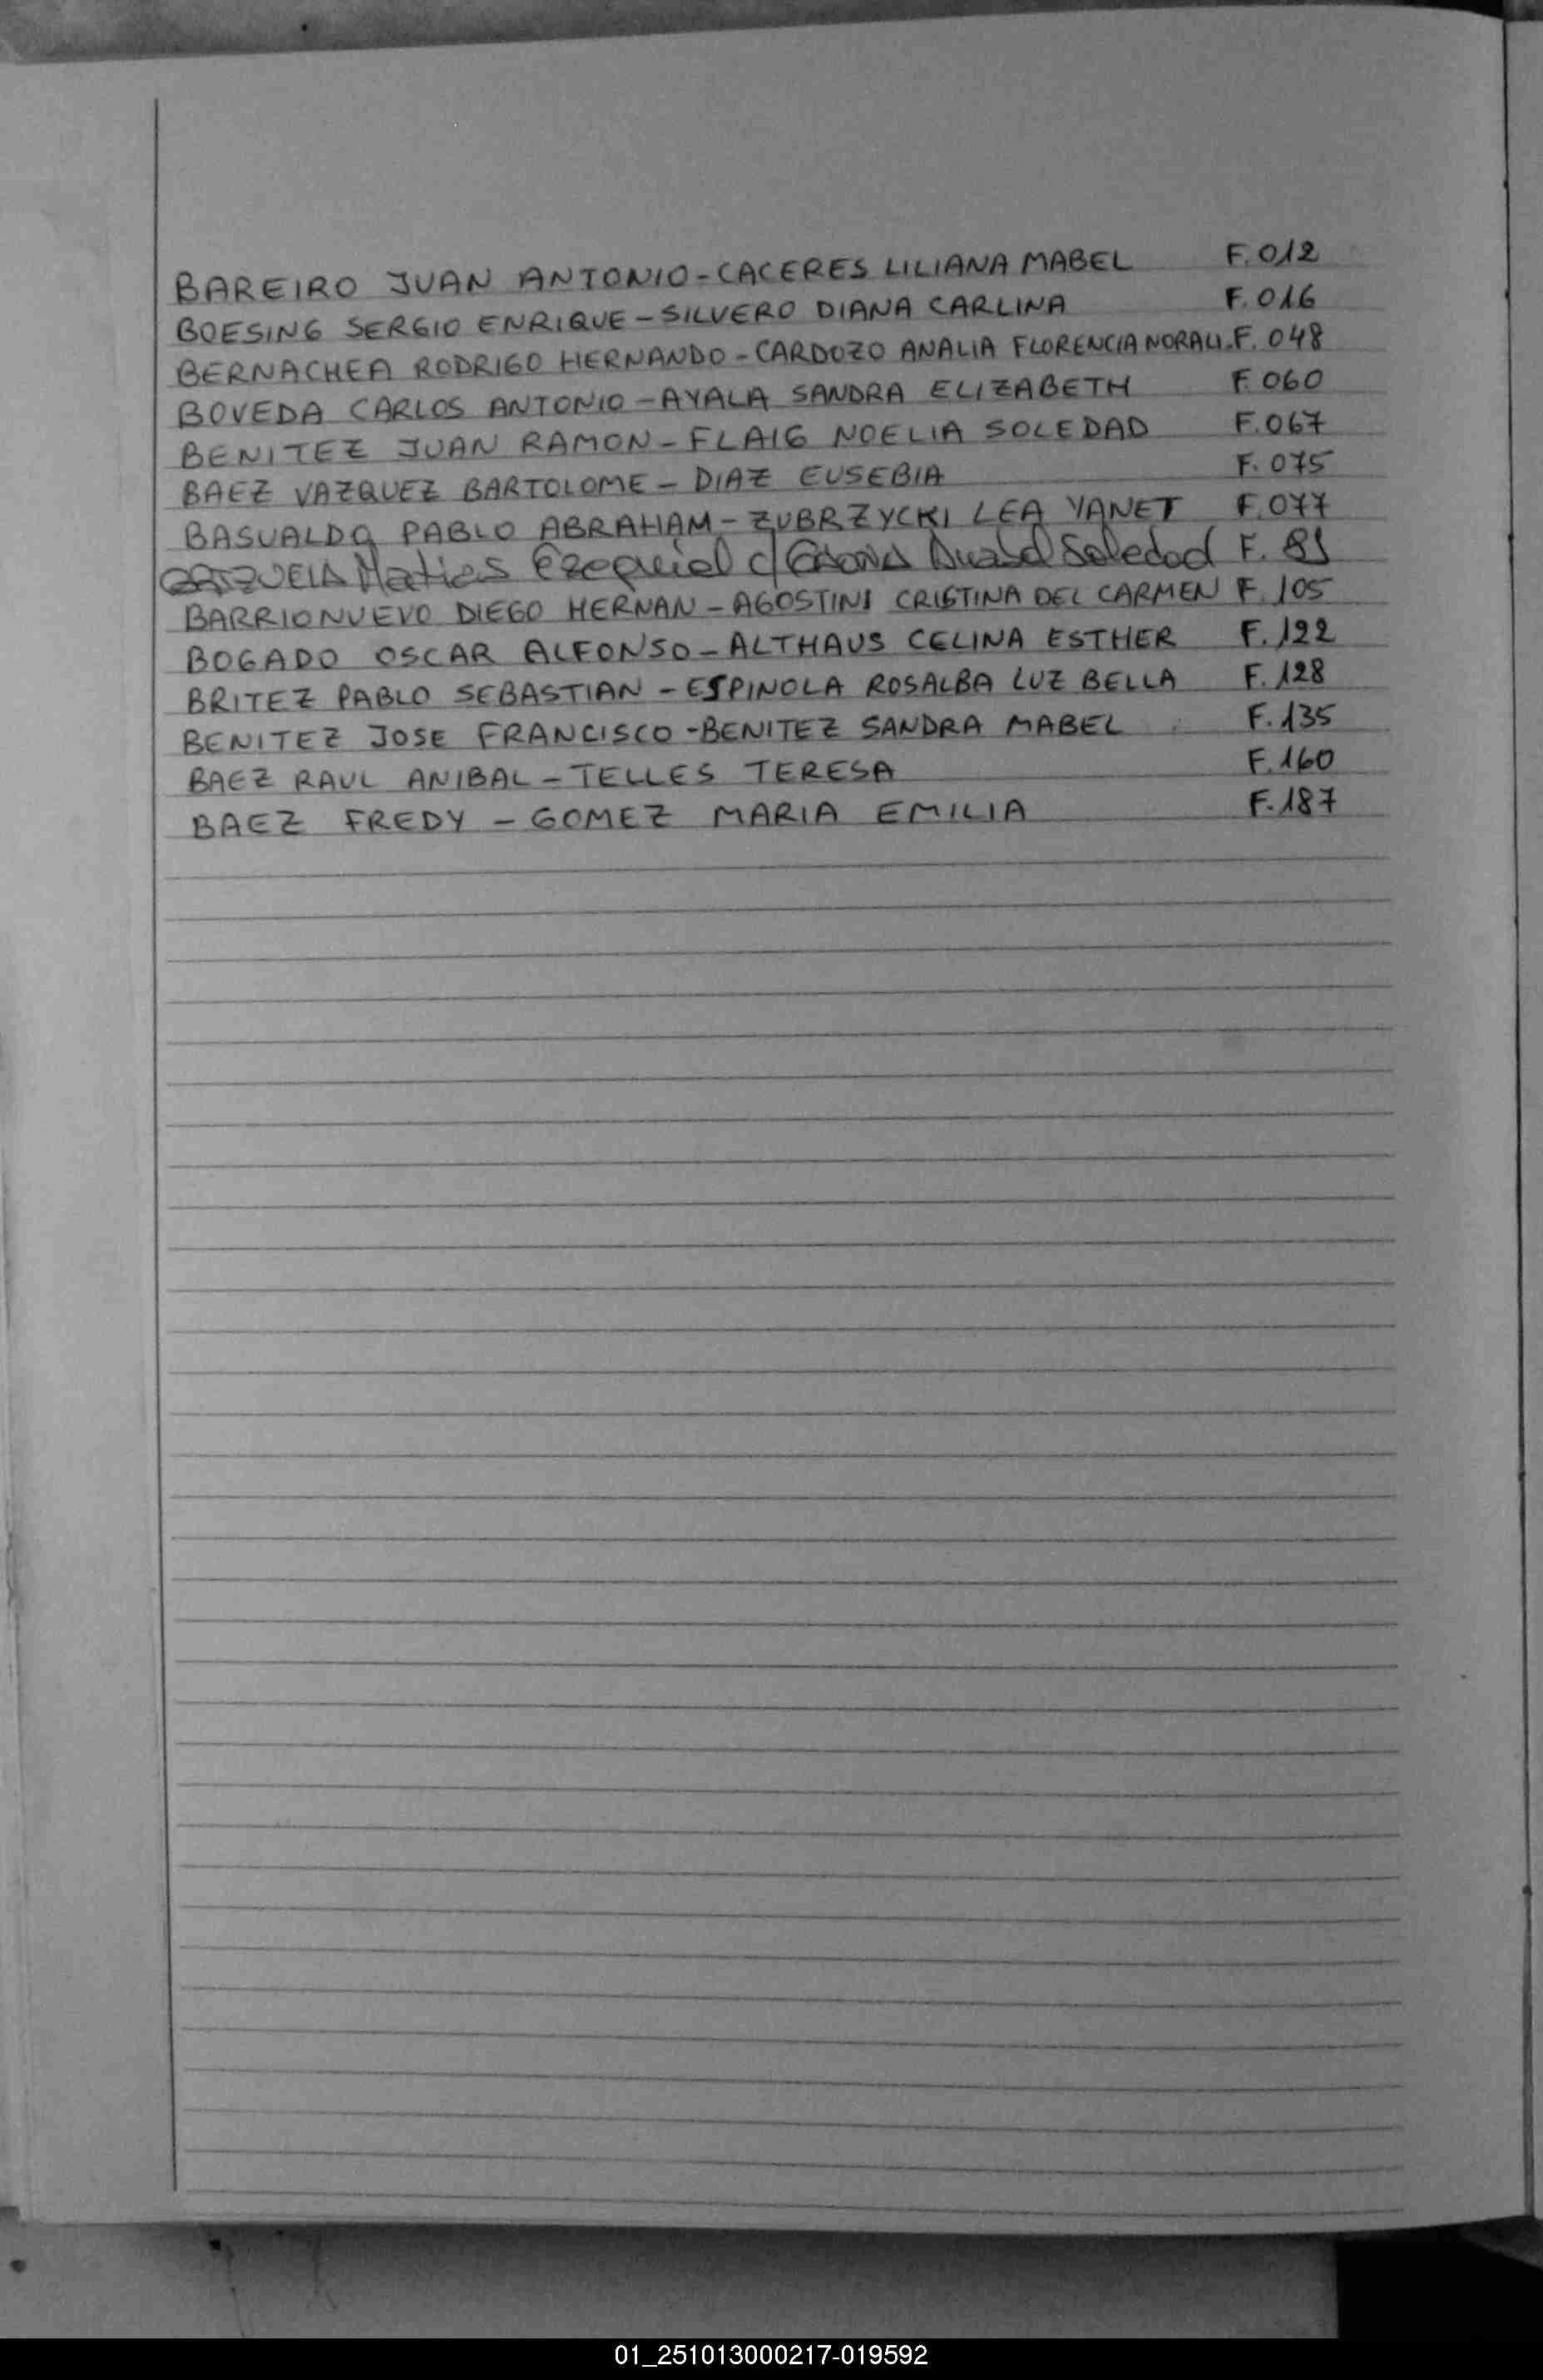 BAREIRO JUAN ANTONIO - CACERES LILIANA MABEL F. 012
BOESING SERGIO ENRIQUE - SILVERO DIANA CARLINA F. 016
BERNACHEA RODRIGO HERNANDO - CARDOZO ANALIA FLORENCIA NORALI. F. 048
BOVEDA CARLOS ANTONIO - AYALA SANDRA ELIZABETH F. 060
BENITEZ JUAN RAMON - FLAIG NOELIA SOLEDAD F. 067
BAEZ VAZQUEZ BARTOLOME - DIAZ EUSEBIA F. 075
BASUALDO PABLO ABRAHAM - ZUBRZYCKI LEA YANET F. 077
Matias Ezequiel c/ Soledad F. 81
BARRIONUEVO DIEGO HERNAN - AGOSTINI CRISTINA DEL CARMEN F. 105
BOGADO OSCAR ALFONSO - ALTHAUS CELINA ESTHER F. 122
BRITEZ PABLO SEBASTIAN - ESPINOLA ROSALBA LUZ BELLA F. 128
BENITEZ JOSE FRANCISCO - BENITEZ SANDRA MABEL F. 135
BAEZ RAUL ANIBAL - TELLES TERESA F. 160
BAEZ FREDY - GOMEZ MARIA EMILIA F. 187
01_251013000217-019592